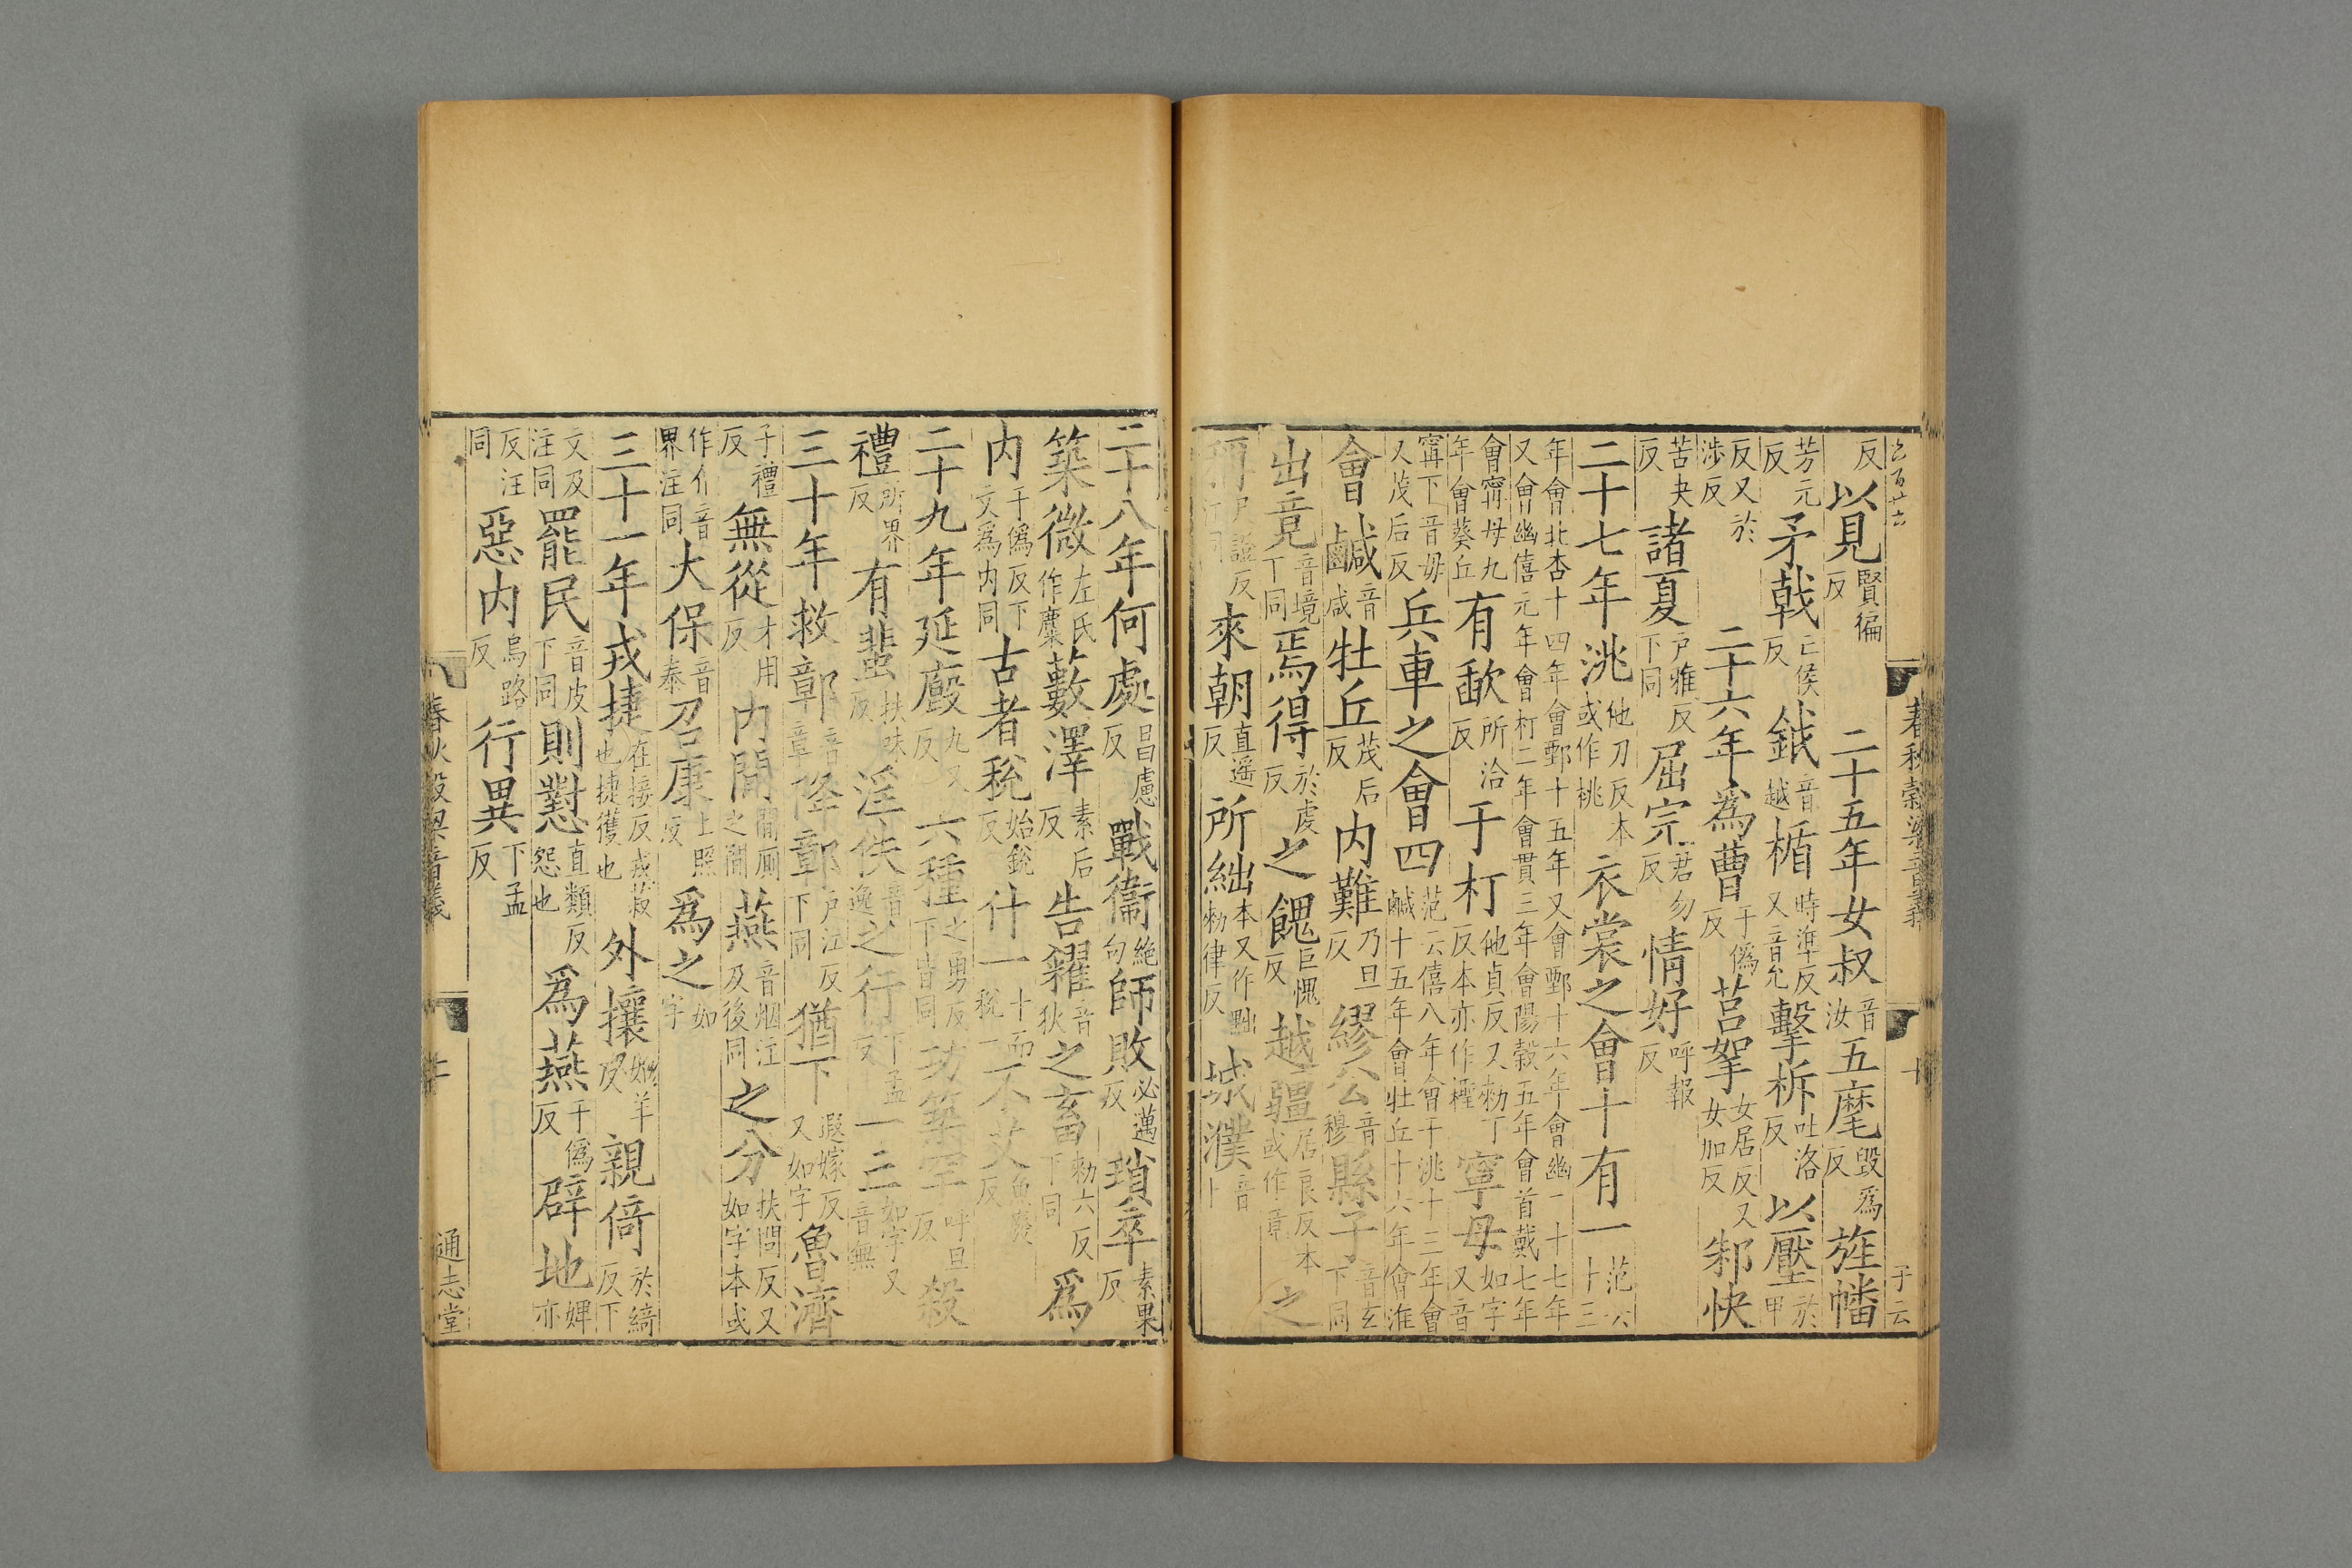 反以見賢徧反 二十五年女叔音汝五麾毀爲反旌幡
芳元反矛戟亡侯反鉞音越楯時準反又音允擊柝吐洛反以壓於甲
反又於涉反 二十六年爲曹于僞反莒挐女居反又女加反邾快
苦夬反諸夏戶雅反下同屈宗君勿反情好呼報反
二十七年洮他刀反本或作桃衣裳之會十有一范云十三
年會北杏十四年會鄄十五年又會鄄十六年會幽二十七年又會幽僖元年會杅二年會貫三年會陽穀五年會首戴七年
會甯母九年會葵丘有歃所洽反于朾他貞反又勑丁反本亦作檉寧母如字又音
甯下音毋又茂后反兵車之會四范云僖八年會于洮十三年會鹹十五年會牡丘十六年會淮
會鹹音咸牡丘茂后反内難乃旦反繆公音穆縣子音玄下同
出竟音境下同焉得於虔反之餽巨愧反越疆居良反本或作竟之
來朝直遥反所絀本又作黜勑律反城濮音卜
春秋穀梁音義
十
二十八年何處昌慮反戰衞絶句師敗必邁反瑣卒素果反
築微左氏作麋藪澤素后反告糴音狄之畜勑六反下同爲
内于僞反下文爲内同古者稅始銳反什一十而稅一不艾魚廢反
二十九年延廏九又反六種之勇反下皆同功築罕呼旦反殺
禮所界反有蜚扶味反淫佚音逸之行下孟反一亡如字又音無
三十年救鄣音章降鄣戶江反下同猶下遐嫁反又如字魯濟
子禮反無從才用反内閒閒厠之閒燕音烟注及後同之分扶問反又如字本或
作介音界注同大保音泰召康上照反爲之如字
三十一年戎捷在接反戎菽也捷獲也外攘如羊反親倚於綺反下
文及注同罷民音皮下同則懟直類反怨也爲燕于僞反辟地婢亦
反注同惡内烏路反行異下孟反
春秋穀梁音義
通志堂